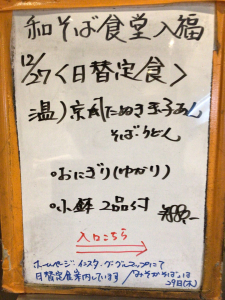 和そば食堂入福
12/27〈日替定食〉
温)京風たぬき玉子あん
そば・うどん
・おにぎり(ゆかり)
・小鉢2品付
入口こちら
ホームページ・インスタ・グーグルマップにて
日替定食案内しています
みそかそばは
29日(木)